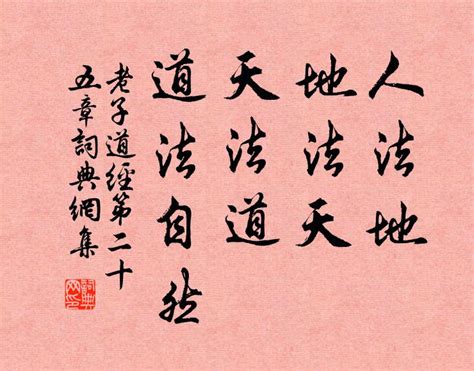 人法地
地法天
天法道
道法自然
老子道經第二十
五章詞典網集